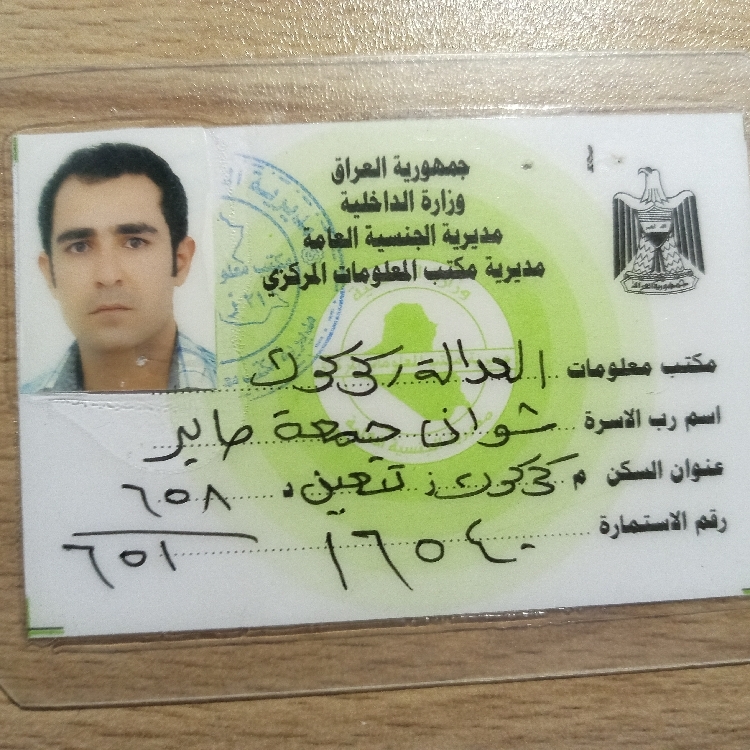 جمهورية العراق
وزارة الداخلية
مديرية الجنسية العامة
مديرية مكتب المعلومات المركزي
مكتب معلومات العدالة / كركوك
اسم رب الاسرة شوان جمعة صابر
عنوان السكن م كركوك ز تسعين د ٦٥٨
رقم الاستمارة ١٦٥٤٠ ٦٥١